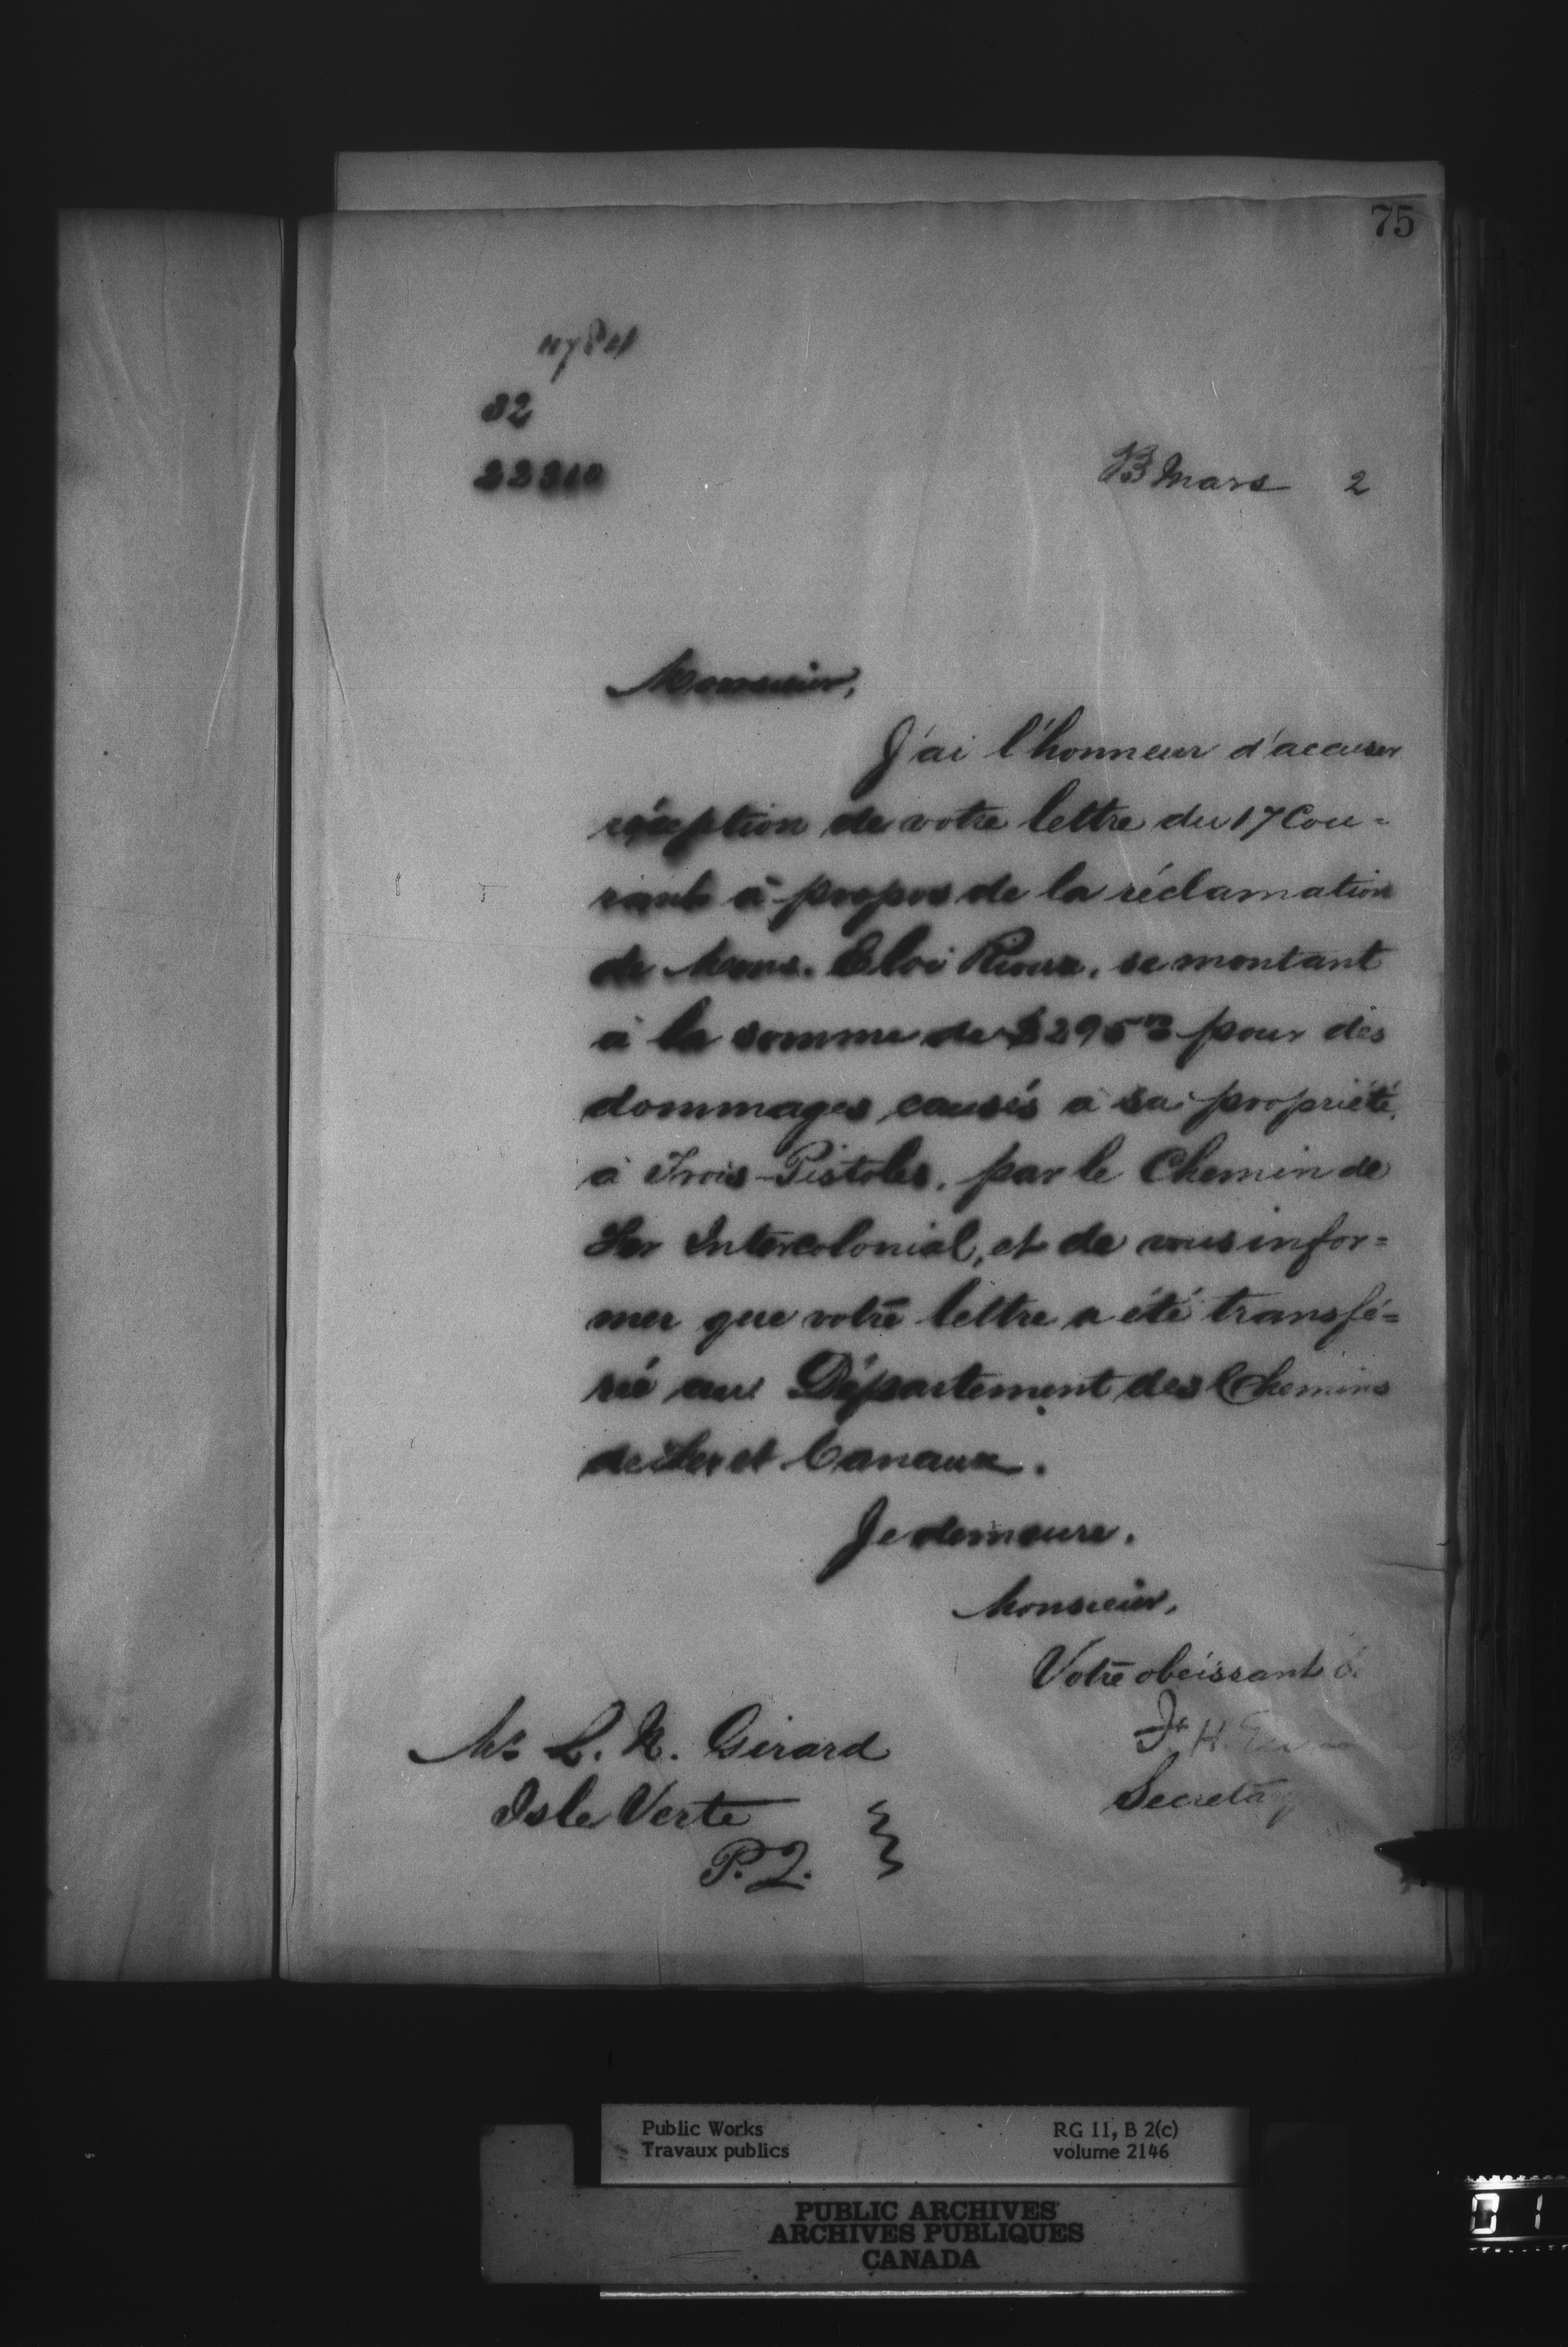 75
32
22310
Mars 2
Monsieur,
J'ai l'honneur d'accuser
réception de votre lettre du 17 Cou=
rant à propos de la réclamation
de Mons. Eloi Rioux, se montant
à la somme de $295 pour des
dommages causés à sa propriété,
à Trois-Pistoles, par le Chemin de
Fer Intercolonial, et de vous infor=
mer que votre lettre a été transfé=
rée au Département des Chemins
de Fer et Canaux.
Je demeure,
Monsieur,
Votre obeissant
Mr L. N. Girard
Isle Verte
P.Q.
F. H.
Secretary
Public Works
Travaux publics
RG 11, B 2(c)
volume 2146
PUBLIC ARCHIVES
ARCHIVES PUBLIQUES
CANADA